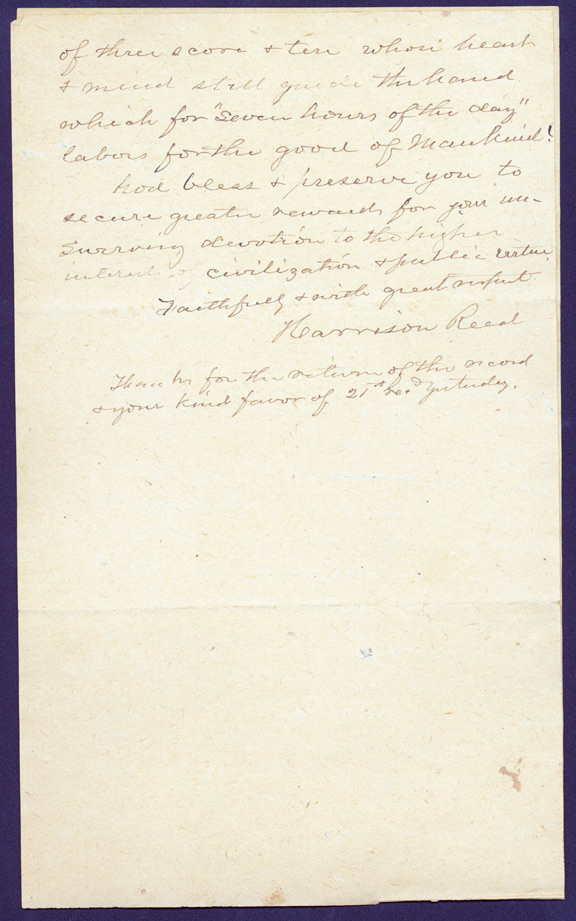 of three score & ten whose heart
& mind still guide the hand
which for "seven hours of the day"
labors for the good of Mankind!
God bless & preserve you to
secure greater rewards for your un-
swerving devotion to the higher
interest of civilization & public virtue
Faithfully & with great respect
Harrison Reed
Thanks for the return of the record
& your kind favor of 21st recd yesterday.